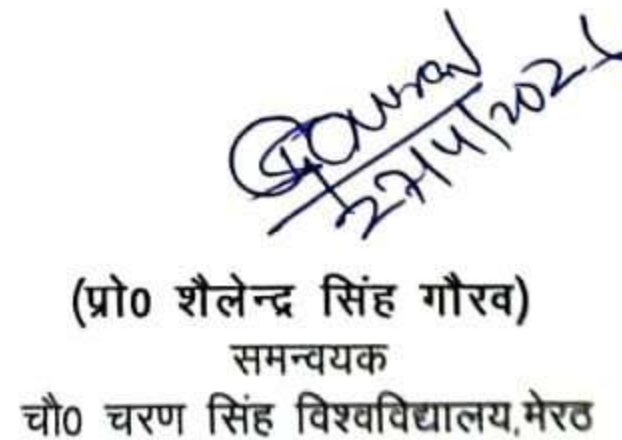 Gaurav
27/4/202
(प्रो0 शैलेन्द्र सिंह गौरव)
समन्वयक
चौ0 चरण सिंह विश्वविद्यालय,मेरठ